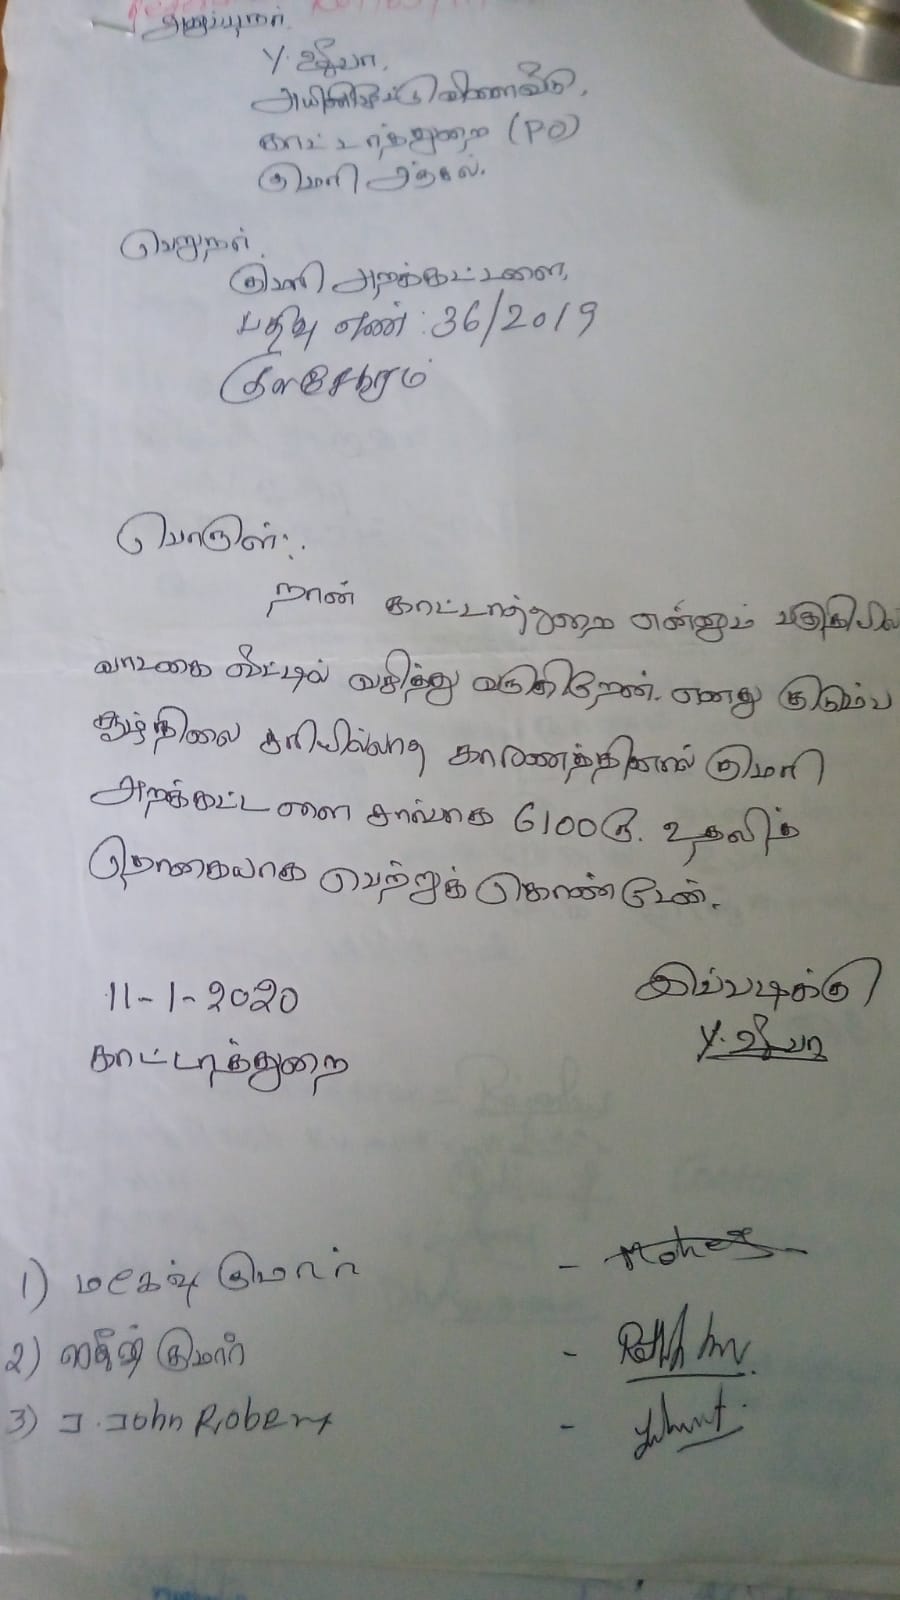 அனுப்புநர்
Y. ஜீவா,
காட்டாத்துறை (PO)
குமரி
பெறுநர்
குமரி அறக்கட்டளை,
பதிவு எண் : 36/2019
குலசேகரம்
பொருள்:
நான் காட்டாத்துறை என்னும் பகுதியில்
வாடகை வீட்டில் வசித்து வருகிறேன். எனது குடும்ப
சூழ்நிலை சரியில்லாத காரணத்தினால் குமரி
அறக்கட்டளை சார்பாக 6100ரூ. உதவித்
தொகையாக பெற்றுக் கொண்டேன்.
11-1-2020 இப்படிக்கு
காட்டாத்துறை Y. ஜீவா
1) மகேஷ் குமார் -
2) குமார் -
3) J. John Robert -